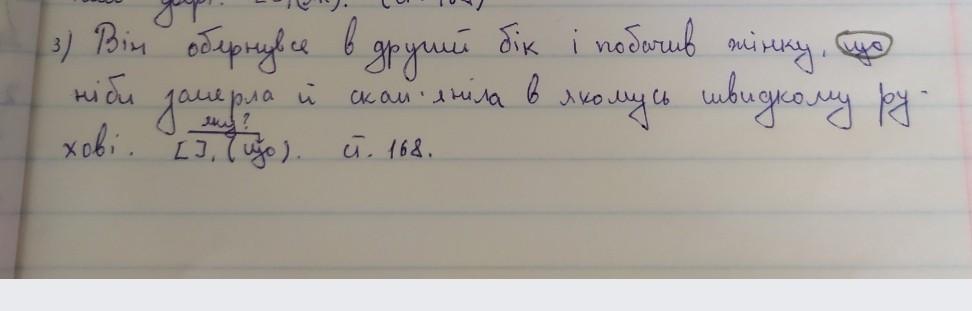 3) Він обернувся в другий бік і побачив жінку, що
ніби замерла й скам'яніла в якомусь швидкому ру-
яку?
хові. [ ], (що). ст. 168.